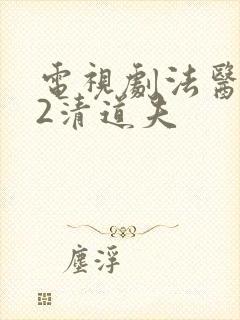 電視劇法醫
2清道夫
塵浮